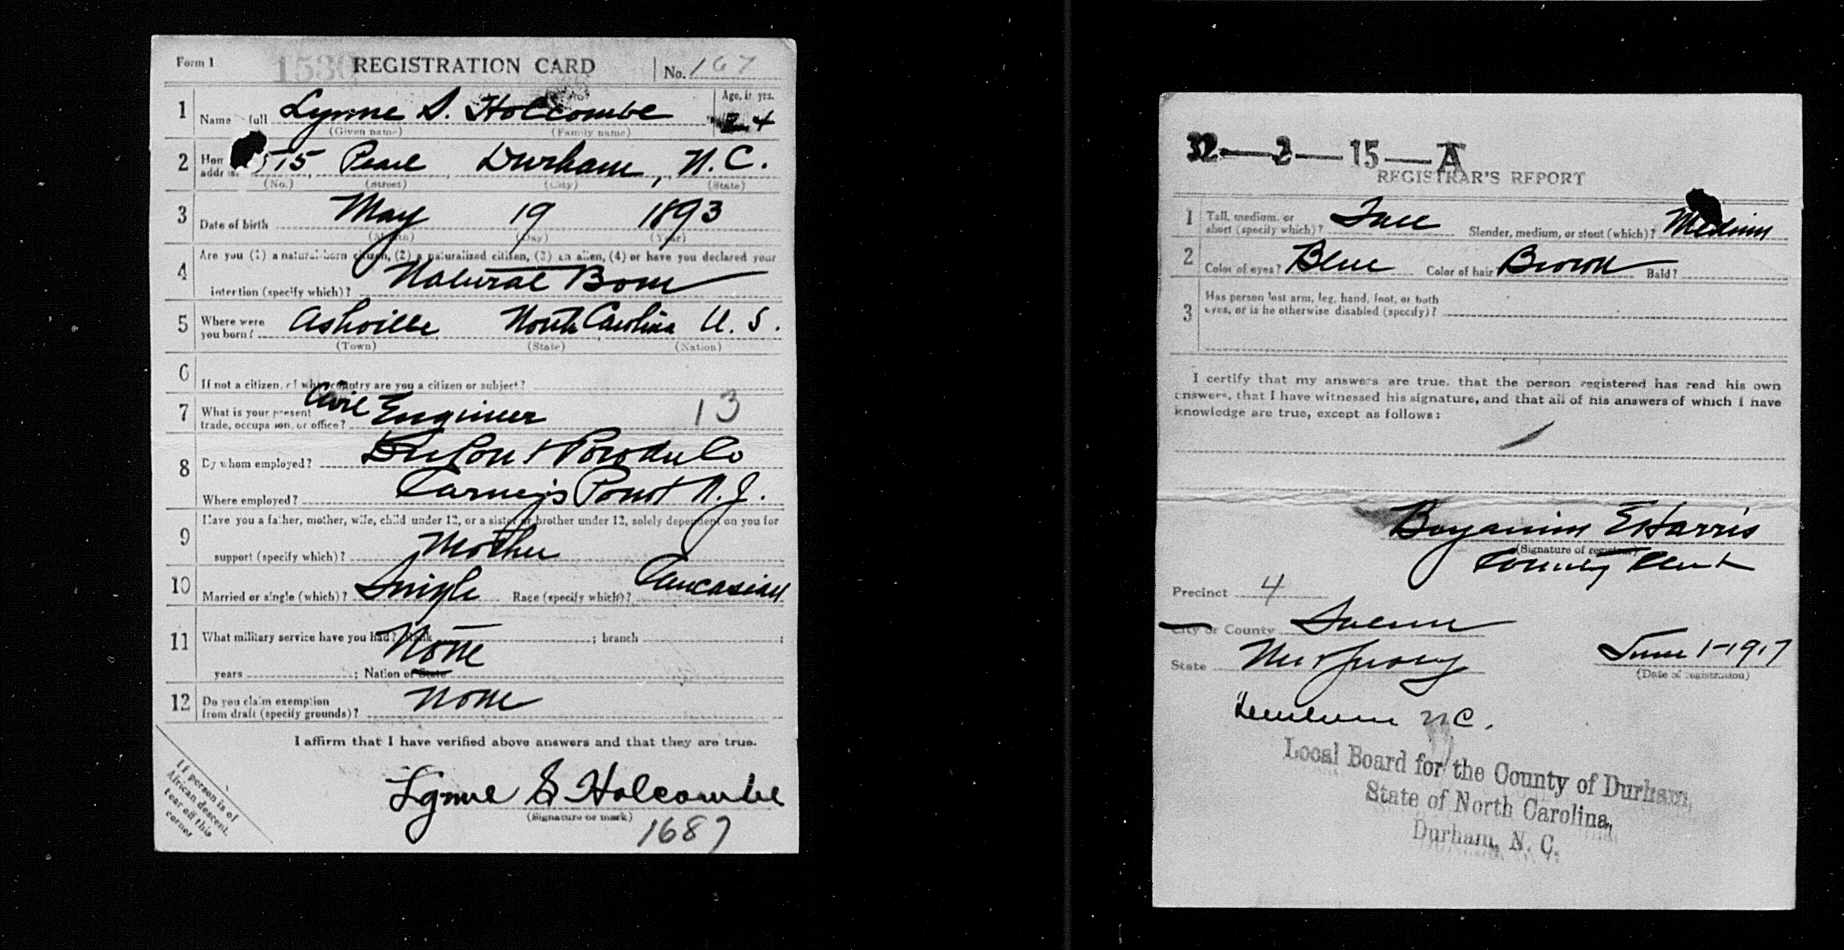 Form 1 1530 REGISTRATION CARD No. 167
1 Name full Lynne S. Holcombe Age, in yrs. 24
(Given name) (Family name)
2 Home address 515 Pearl Durham, N.C.
(No.) (Street) (City) (State)
3 Date of birth May 19 1893
(Month) (Day) (Year)
4 Are you (1) a natural-born citizen, (2) a naturalized citizen, (3) an alien, (4) or have you declared your
intention (specify which)? Natural Born
5 Where were you born? Ashville North Carolina U.S.
(Town) (State) (Nation)
6 If not a citizen, of what country are you a citizen or subject?
7 What is your present
trade, occupation, or office? Civil Engineer 13
8 By whom employed? DuPont Powder Co
Where employed? Carneys Point N.J.
9 Have you a father, mother, wife, child under 12, or a sister or brother under 12, solely dependent on you for
support (specify which)? Mother
10 Married or single (which)? Single Race (specify which)? Caucasian
11 What military service have you had? Rank None ; branch ;
years ; Nation or State
12 Do you claim exemption
from draft (specify grounds)? None
I affirm that I have verified above answers and that they are true.
Lynne S Holcombe
(Signature or mark)
1687
If person is of
African descent,
tear off this
corner
32—2—15—A
REGISTRAR'S REPORT
1 Tall, medium, or
short (specify which)? Tall Slender, medium, or stout (which)? Medium
2 Color of eyes? Blue Color of hair Brown Bald?
3 Has person lost arm, leg, hand, foot, or both
eyes, or is he otherwise disabled (specify)?
I certify that my answers are true, that the person registered has read his own
answers, that I have witnessed his signature, and that all of his answers of which I have
knowledge are true, except as follows:
Benjamin E Harris
(Signature of registrar)
County Clerk
Precinct 4
City or County Salem
State New Jersey June 1-1917
(Date of registration)
Durham N.C.
Local Board for the County of Durham,
State of North Carolina,
Durham, N. C.